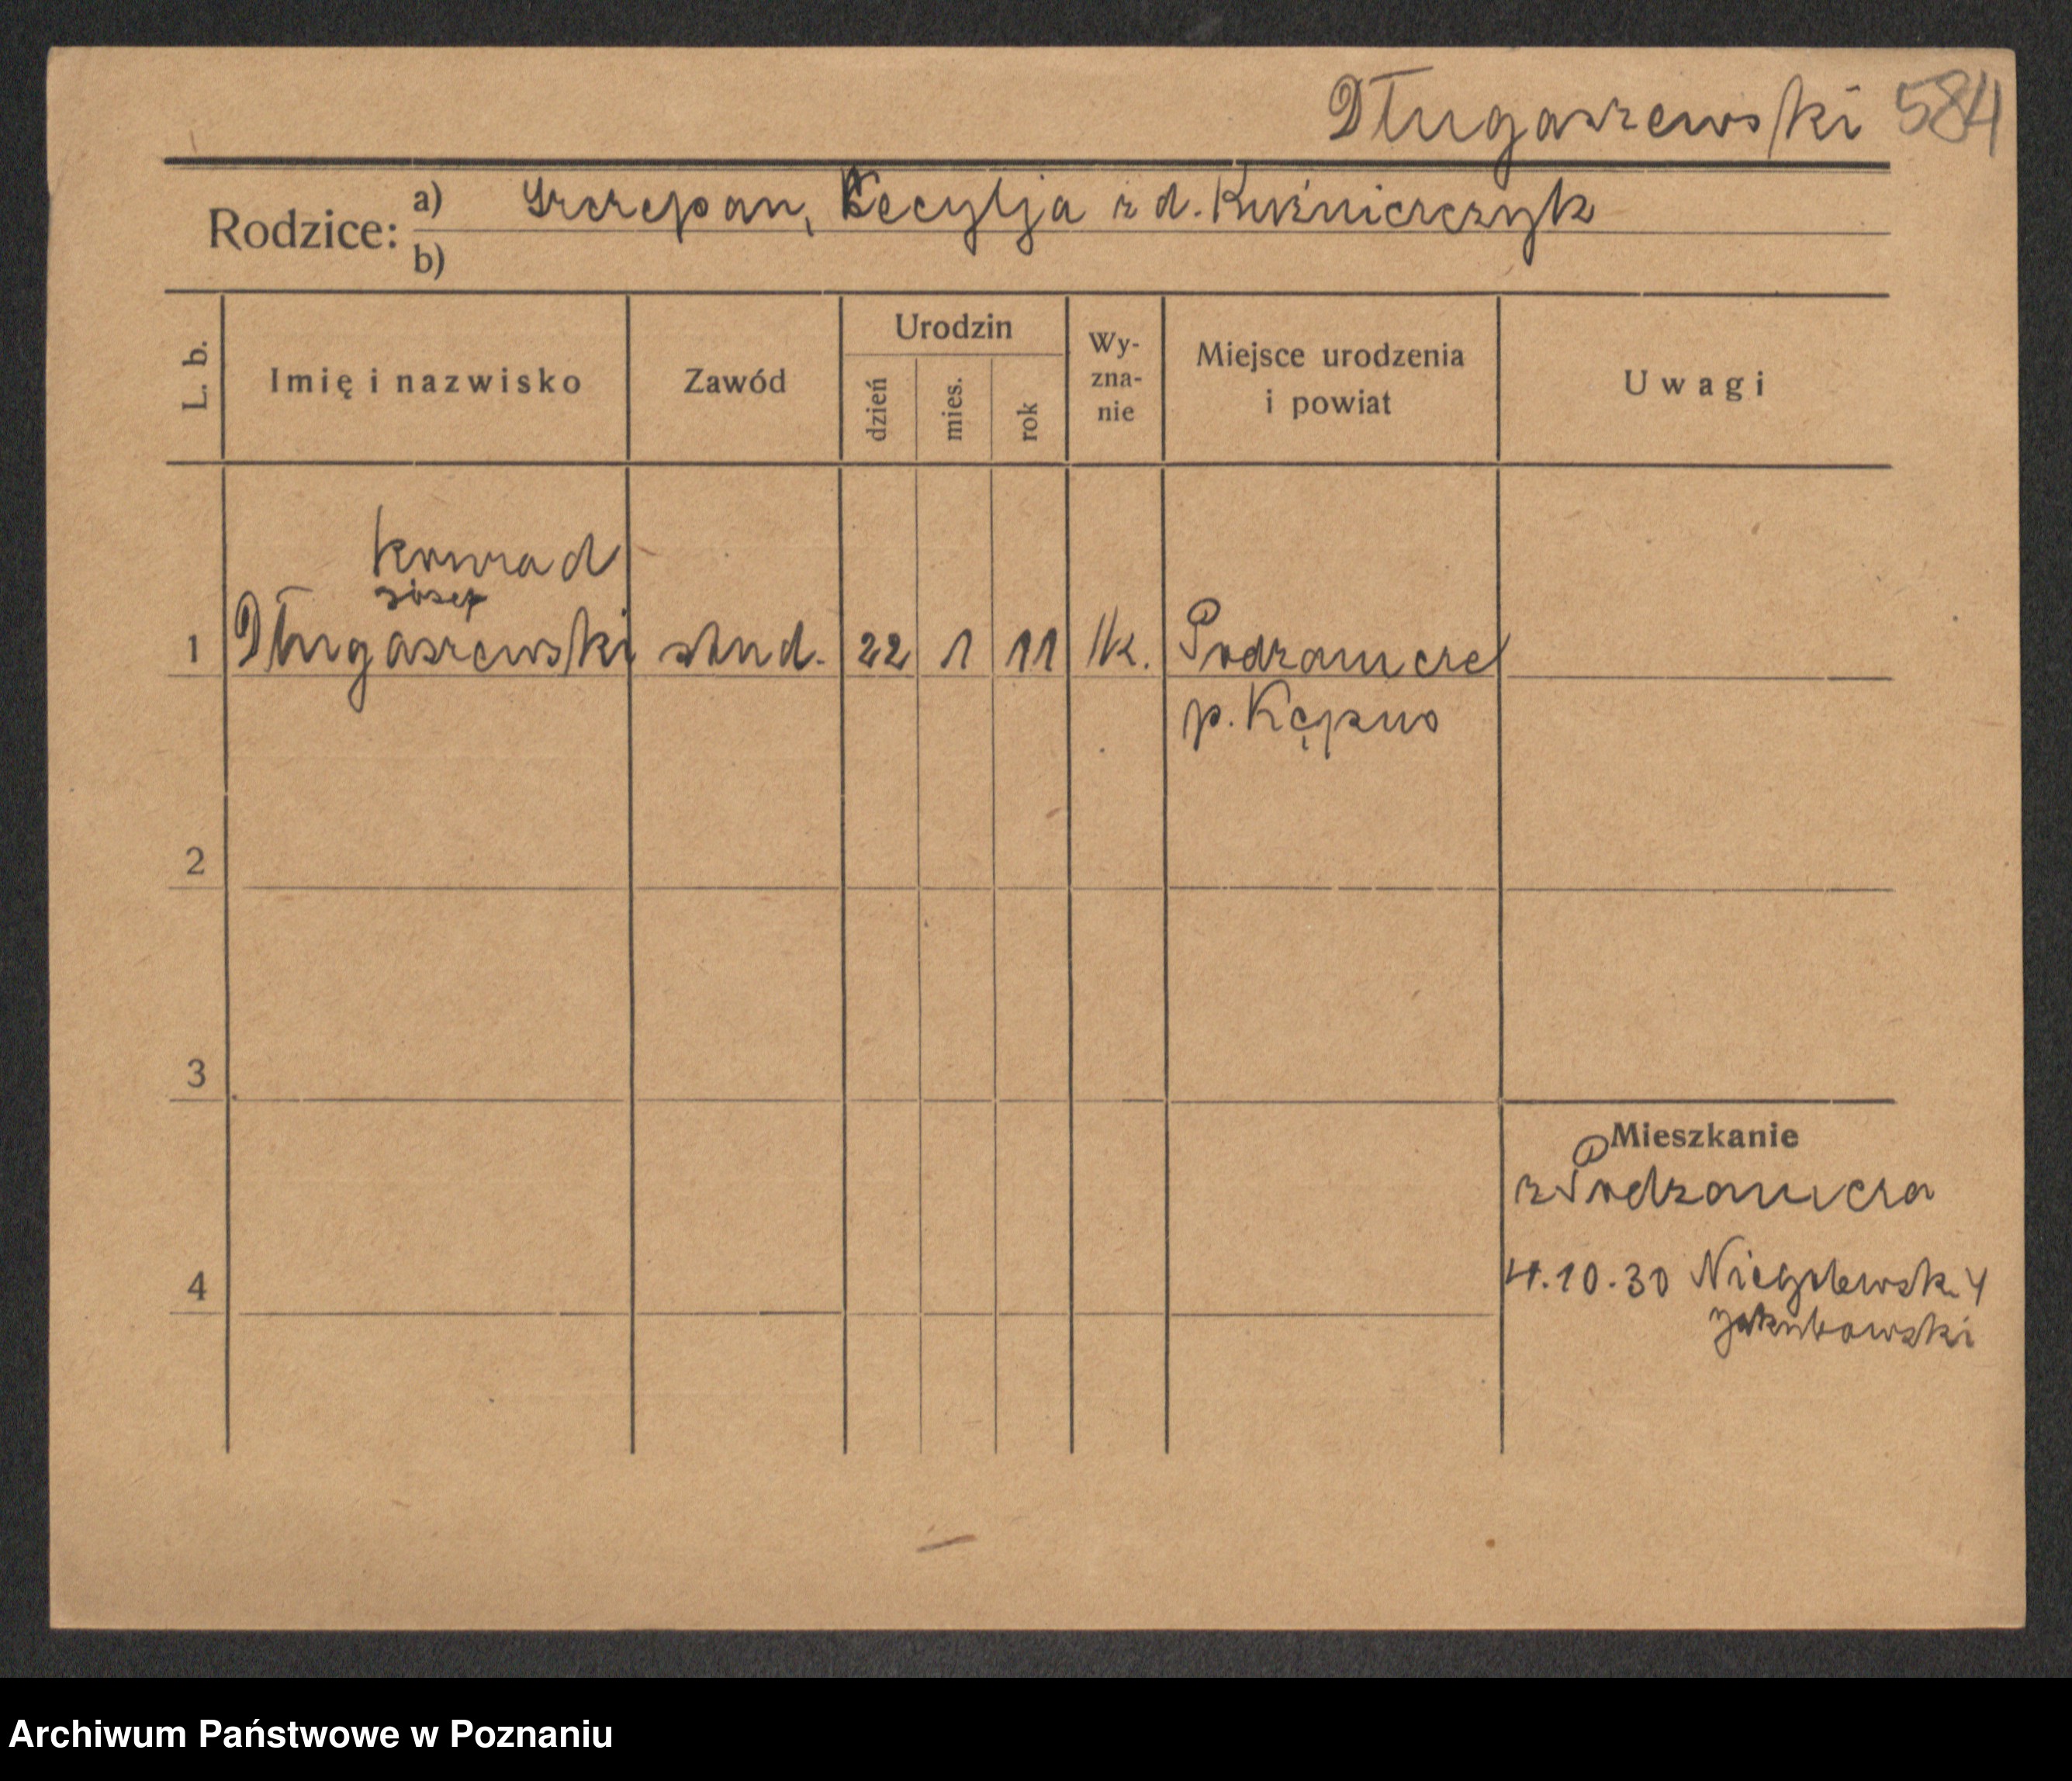 Długaszewski 584
Rodzice: a) Szczepan, Cecylja z d. Kuźnierczyk
b)
L. b.
Imię i nazwisko
Zawód
Urodzin
dzień
mies.
rok
Wy-
zna-
nie
Miejsce urodzenia
i powiat
Uwagi
Konrad
Józef
1 Długaszewski stud. 22 1 11 rk. Podzamcze
p. Kępno
2
3
Mieszkanie
z Podzamcza
4
4.10.30 Niegolewsk. 4
Jakubowski
Archiwum Państwowe w Poznaniu